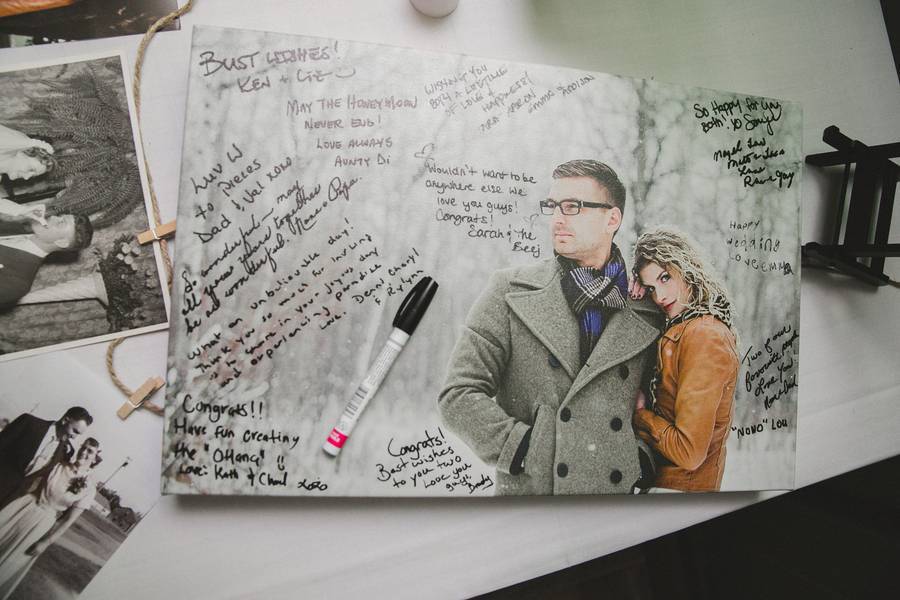 BEST WISHES!
KEN + LIE
MAY THE HONEYMOON
NEVER END!
LOVE ALWAYS
AUNTY Di
WISHING YOU
BOTH A LIFETIME
OF LOVE &
HAPPINESS!
AARON EMMA ADDISON
So Happy for you
Both! XO
Love
Luv U
to pieces
Dad & Val XOXO
So wonderful.. may
all your years together
be all wonderful.
Papa.
Wouldn't want to be
anywhere else we
love you guys!
Congrats!
Sarah & the
Beej
Happy
wedding
Love EMMA
What an unbelievable day!
Thank you so much for inviting
us to share in your joyous day
and
Love, Denis, Cheryl
& Rylynn
Congrats!!
Have fun creating
the "OHana"
Love: Kath & Chad xoxo
Congrats!
Best wishes
to you two
Love you
guys
Brady
Two of our
favourite people
Love You
"NONO" Lou